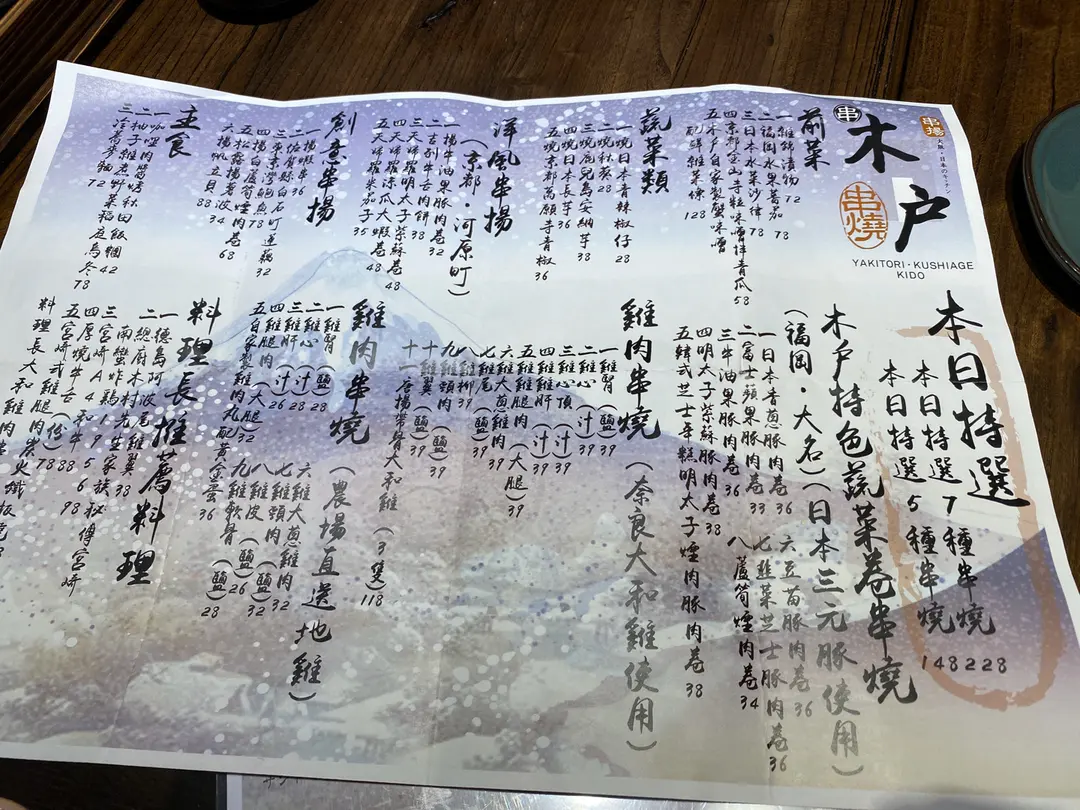 串揚
大阪・日本のキッチン
串
木戸
串燒
YAKITORI・KUSHIAGE
KIDO
本日特選
本日特選7種串燒 228
本日特選5種串燒 148
木戸特色蔬菜卷串燒
(福岡・大名)(日本三元豚使用)
一日本青葱豚肉卷 36
二富士蘋果豚肉卷 33
三牛油果豚肉卷 36
四明太子紫蘇豚肉卷 38
五韓式芝士年糕明太子煙肉豚肉卷 38
六豆苗豚肉卷 36
七韮菜芝士豚肉卷 36
八蘆筍煙肉卷 34
前菜
一雜錦漬物 72
二福岡水果蕃茄 78
三日本水菜沙律 78
四京都金山寺粒味噌拌青瓜 58
五木戸自家製蟹味噌
配鮮雜菜條 128
蔬菜類
一燒日本青辣椒仔 28
二燒秋葵 28
三燒鹿兒島安納芋 38
四燒日本長芋 36
五燒京都萬願寺青椒 36
雞肉串燒(奈良大和雞使用)
一雞腎(鹽)39
二雞心(汁)39
三雞心頂 39
四雞肝(汁)39
五雞腿肉(大腿)39
六雞大葱雞肉 39
七雞尾(鹽)39
八雞柳 39
九雞頸肉(鹽)39
十雞翼(鹽)39
十一谷揚帶骨大和雞(3隻)118
洋風串揚
(京都・河原町)
一揚牛油果豚肉卷 32
二吉列牛舌肉餅 38
三天婦羅明太子紫蘇卷 48
四天婦羅涼瓜大蝦卷 48
五天婦羅粟茄子 35
雞肉串燒(農場直送地雞)
一雞腎(鹽)28
二雞心(汁)28
三雞肝(汁)26
四雞腿肉(大腿)32
五自家製雞肉丸配黃金蛋 36
六雞大葱雞肉 32
七雞頸肉(鹽)32
八雞皮(鹽)26
九雞軟骨(鹽)28
創意串揚
一揚蝦串 36
二佐賀縣白石町蓮藕 32
四揚白蘆筍煙肉卷 68
六揚帆立貝 88
料理長推薦料理
一德島阿波尾雞翼 38
二總厨木村先生家族秘傳宮崎
南蠻炸鷄 195
三宮崎A4和牛 98
四厚燒牛舌 88
五宮崎式雞腿肉炭火
料理長大和雞肉
主食
一咖喱肉醬烤秋田飯糰 42
二柚子雜煮野菜稻庭烏冬 78
72